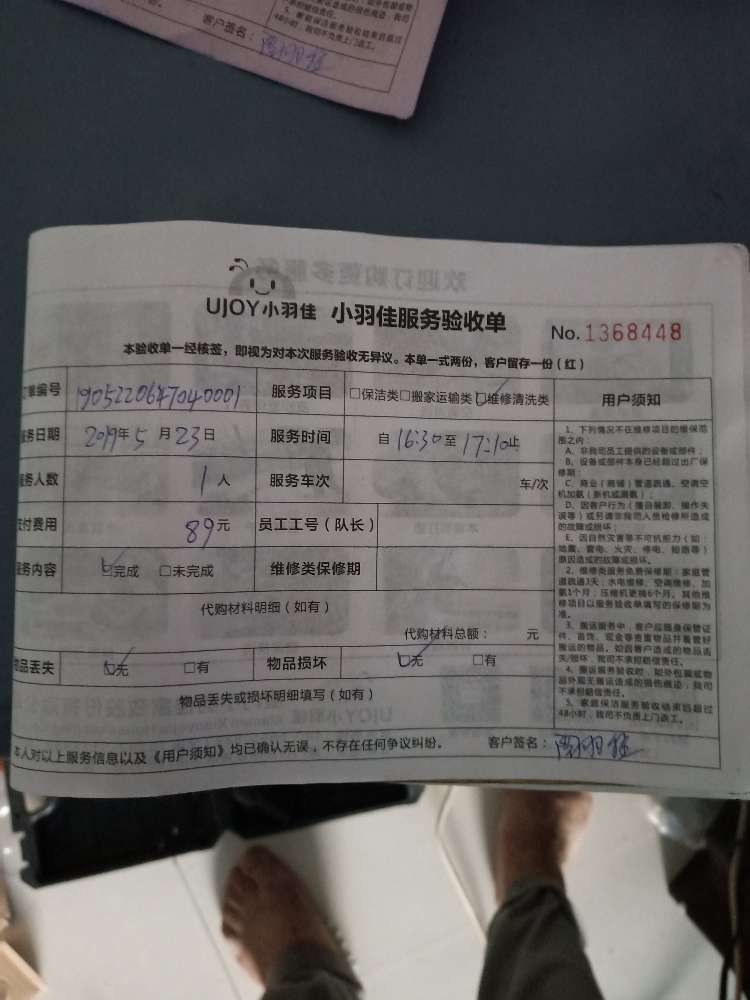 5、家庭保洁服务验收结束后超过
48小时，我司不负责上门返工。
客户签名：
UJOY小羽佳 小羽佳服务验收单
No.1368448
本验收单一经核签，即视为对本次服务验收无异议。本单一式两份，客户留存一份（红）
订单编号 1905220647040001 服务项目 □保洁类□搬家运输类☑维修清洗类 用户须知
服务日期 2019年5月23日 服务时间 自16:30至17:10止
服务人数 1人 服务车次 车/次
支付费用 89元 员工工号（队长）
服务内容 ☑完成 □未完成 维修类保修期
代购材料明细（如有）
代购材料总额： 元
物品丢失 ☑无 □有 物品损坏 ☑无 □有
物品丢失或损坏明细填写（如有）
本人对以上服务信息以及《用户须知》均已确认无误，不存在任何争议纠纷。 客户签名：
1、下列情况不在维修项目的维保范
围之内：
A、非我司员工提供的设备或部件；
B、设备或部件本身已经超过出厂保
修期；
C、商业（商铺）管道疏通、空调空
机加氨（新机或漏氨）；
D、因客户行为（擅自装卸、操作失
误等）或另请非我司人员检修所造成
的故障或损坏；
E、因自然灾害等不可抗能力（如：
地震、雷电、火灾、停电、短路等）
原因造成的故障或损坏。
2、维修类服务免费保修期：家庭管
道疏通3天；水电维修、空调维修、加
氨1个月；压缩机更换6个月。其他维
修项目以服务验收单填写的保修期为
准。
3、搬运服务中，客户应随身保管证
件、首饰、现金等贵重物品并看管好
搬运的物品。如因客户造成的物品丢
失/损坏，我司不承担赔偿责任。
4、搬运服务验收时，如外包装或物
品外观无搬运造成的损伤痕迹，我司
不承担赔偿责任。
5、家庭保洁服务验收结束后超过
48小时，我司不负责上门返工。